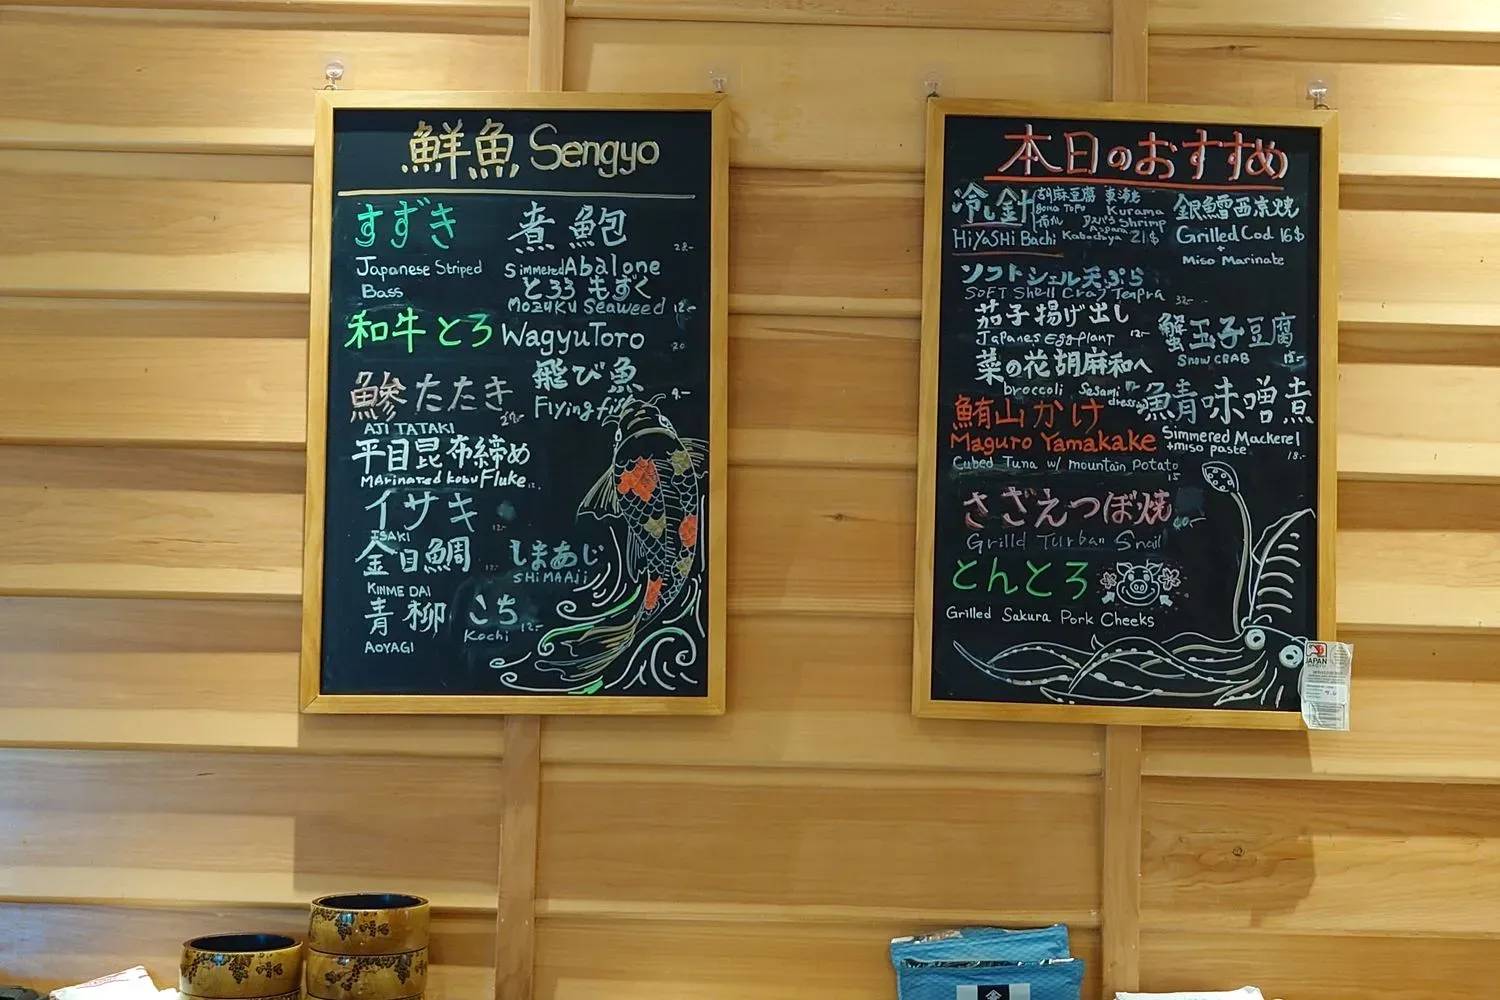 鮮魚 Sengyo
すずき
Japanese Striped
Bass
煮鮑
SimmeredAbalone
とろろ もずく
Mozuku Seaweed
和牛とろ WagyuToro
20
飛び魚
Flying fish
9.-
鰺たたき
AJI TATAKI
平目昆布締め
Marinated kobu Fluke
イサキ
ISAKI
12.-
金目鯛
KINME DAI
しまあじ
SHiMAAji
青柳
AOYAGI
こち
Kochi
12.-
本日のおすすめ
冷し針
HiYASHi Bachi
胡麻豆腐
Goma Tofu
Kurama
Shrimp
Kabocha
21$
銀鱈西京焼
Grilled Cod 16$
+
Miso Marinate
ソフトシェル天ぷら
SoFT Shell Crab Tenpra
32.-
茄子揚げ出し
Japanes Eggplant
12.-
蟹玉子豆腐
Snow CRAB
15.-
菜の花胡麻和へ
broccoli Sesami
dressing
鮪山かけ
Maguro Yamakake
Cubed Tuna w/ mountain Potato
15
魚青味噌煮
Simmered Mackerel
+miso paste
18.-
さざえつぼ焼
Grilld Turban Snail
とんとろ
Grilled Sakura Pork Cheeks
JAPAN